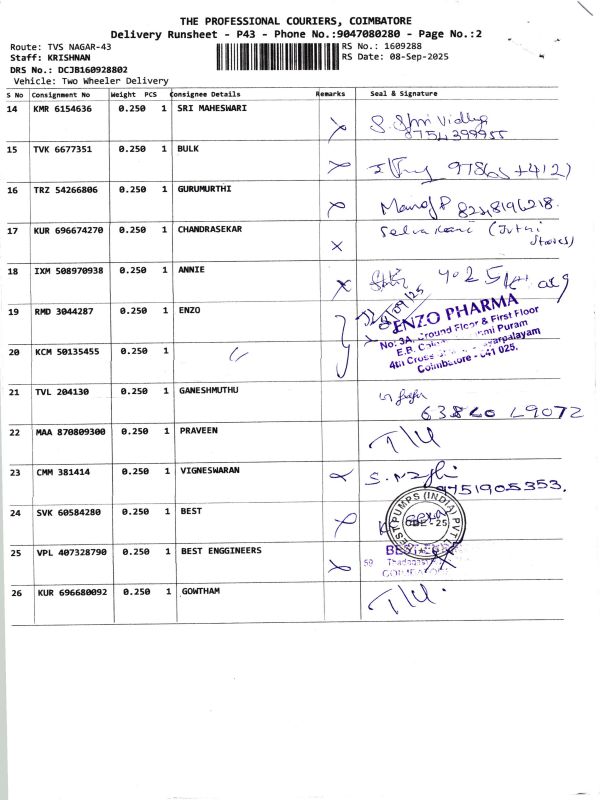 THE PROFESSIONAL COURIERS, COIMBATORE
Delivery Runsheet - P43 - Phone No.:9047080280 - Page No.:2
Route: TVS NAGAR-43 RS No.: 1609288
Staff: KRISHNAN RS Date: 08-Sep-2025
DRS No.: DCJB160928802
Vehicle: Two Wheeler Delivery
S No Consignment No Weight PCS Consignee Details Remarks Seal & Signature
14 KMR 6154636 0.250 1 SRI MAHESWARI
S. Shri Vidhya
8754399955
15 TVK 6677351 0.250 1 BULK
16 TRZ 54266806 0.250 1 GURUMURTHI
Manoj P
17 KUR 696674270 0.250 1 CHANDRASEKAR
Selva Rani
Stores)
18 IXM 508970938 0.250 1 ANNIE
19 RMD 3044287 0.250 1 ENZO
ENZO PHARMA
No: 3A, Ground Floor & First Floor
20 KCM 50135455 0.250 1
4th Cross
Coimbatore - 641 025.
21 TVL 204130 0.250 1 GANESHMUTHU
22 MAA 870809300 0.250 1 PRAVEEN
T/U
23 CMM 381414 0.250 1 VIGNESWARAN
9751905353.
24 SVK 60584280 0.250 1 BEST
BEST PUMPS (INDIA) PVT L
25 VPL 407328790 0.250 1 BEST ENGGINEERS
BEST
59
26 KUR 696680092 0.250 1 GOWTHAM
T/U.